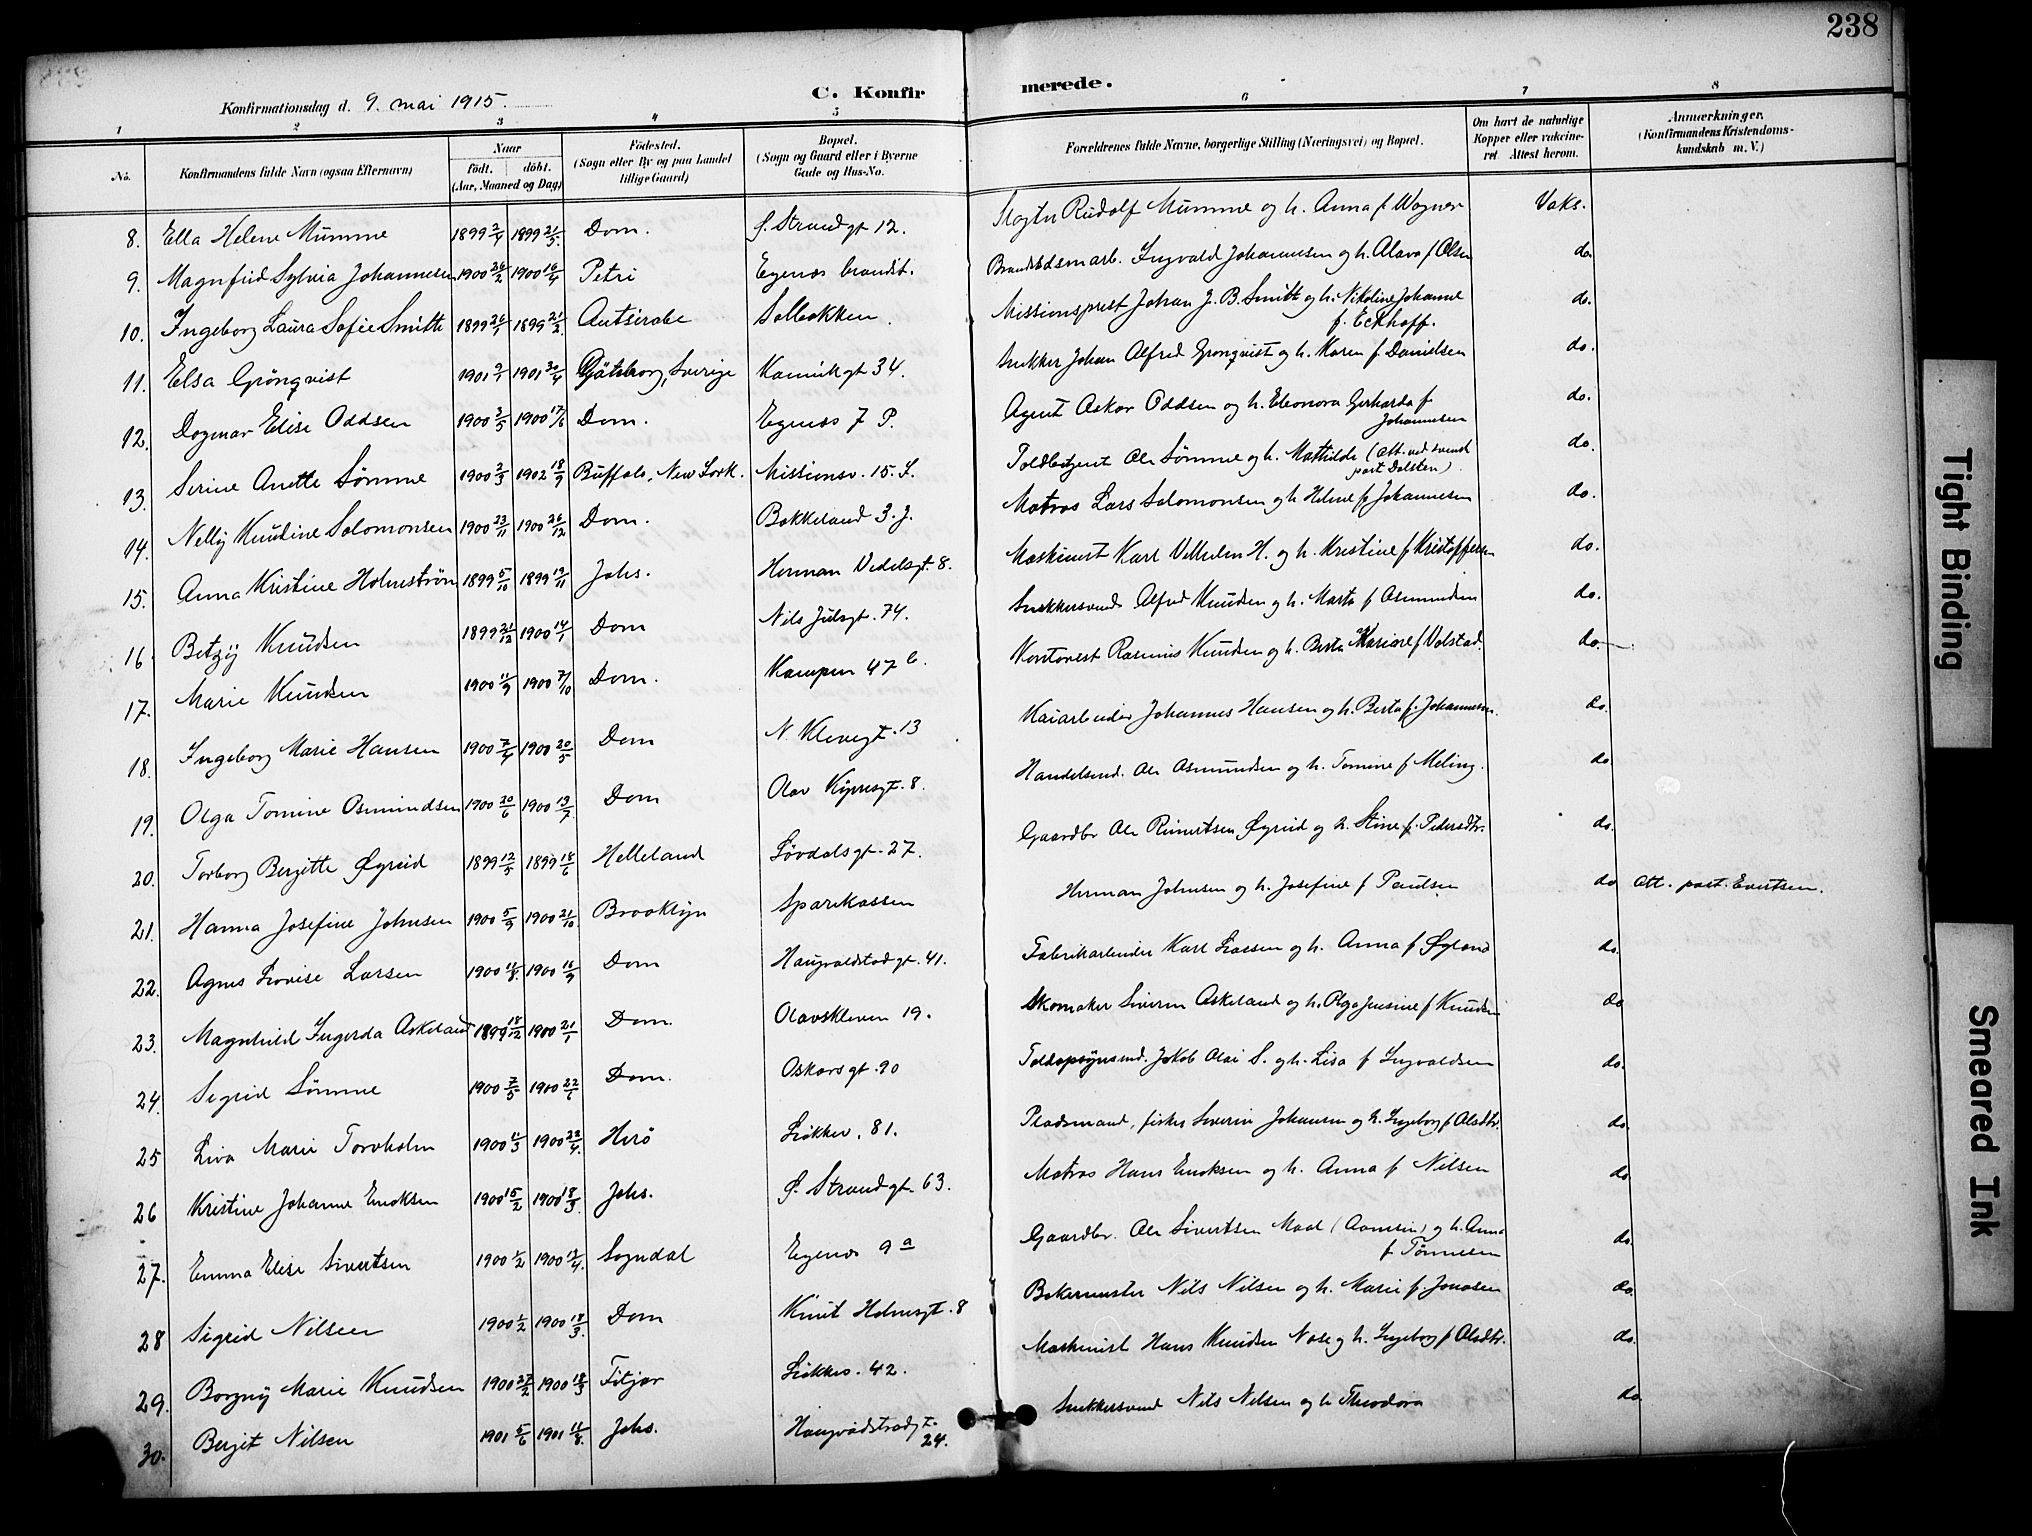 238
Konfirmationsdag d. 9. mai 1915.
C. Konfirmerede.
1 2 3 4 5 6 7 8
No.
Konfirmandens fulde Navn (ogsaa Efternavn)
Naar født. døbt. (Aar, Maaned og Dag)
Fødested. (Sogn eller By og paa Landet tillige Gaard)
Bopæl. (Sogn og Gaard eller i Byerne Gade og Hus-No.
Forældrenes fulde Navne, borgerlige Stilling (Næringsvei) og Bopæl.
Om havt de naturlige Kopper eller vakcineret. Attest herom.
Anmærkninger. (Konfirmandens Kristendomskundskab m. V.)
8. Ella Helene Mumme 1899 2/4 1899 21/5 Dom. S. Strandgt 12. Rudolf Mumme og h. Anna f Wagner Vaks.
9. Magnfrid Sylvia Johannesen 1900 26/2 1900 16/4 Petri Egenæs brandst. Ingvald Johannesen og h. Alava f Olsen do.
10. Ingeborg Laura Sofie Smitt 1899 26/1 1899 21/2 Antsirabe Solbakken. Missionsprest Johan J. B. Smitt og h. Nikoline Johanne f. Eckhoff. do.
11. Elsa Grönqvist 1901 9/1 1901 30/4 Göteborg, Sverige Kamikgt 34. Snekker Johan Alfred Gronqvist og h. Karen f Danielsen do.
12. Dagmar Elise Oddsen 1900 3/5 1900 17/6 Dom. Egenæs 7 P. Agent Askar Oddsen og h. Eleonora Gerharda f Johannesen do.
13. Serine Anette Sømme 1900 2/3 1902 18/9 Buffalo, New York. Missionsv. 15. S. Toldbetjent Ole Sømme og h. Mathilde (att. ved svensk past Dalsten) do.
14. Nelly Knudine Salomonsen 1900 23/11 1900 26/12 Dom. Bakkeland 3. J. Matros Lars Salomonsen og h Helene f Johannesen do.
15. Anna Kristine Holmstrøm 1899 5/10 1899 19/11 Johs. Herman Vedelsgt. 8. Maskinist Karl Vilhelm H. og h. Kristine f Kristoffersen do.
16. Betzy Knudsen 1899 21/12 1900 14/1 Dom Nils Julsgt. 74. Snekkersvend Alfred Knudsen og h. Marta f Asmundsen do.
17. Marie Knudsen 1900 11/9 1900 7/10 Dom. Kampen 47 b. Kontorist Rasmus Knudsen og h. Berta Mariane f Volstad. do.
18. Ingeborg Marie Hansen 1900 7/4 1900 20/5 Dom N. Klevegt. 13 Kaiarbeider Johannes Hansen og h. Berta f. Johannesen. do.
19. Olga Tomine Osmundsen 1900 20/6 1900 13/7 Dom Olav Kyrresgt. 8. Handelsmd. Ole Osmundsen og h. Tomine f Meling. do
20. Torborg Bergitte Øgreid 1899 12/5 1899 18/6 Helleland Løvdalsgt. 27. Gaardbr Ole Reinertsen Øgreid og h. Stine f. Pedersdtr. do.
21. Hanna Josefine Johnsen 1900 5/9 1900 21/10 Brooklyn Sparekassen Herman Johnsen og h. Josefine f Paulsen do att. past. Evertsen.
22. Agnes Lovise Larsen 1900 11/8 1900 16/9 Dom Haugvaldstadgt. 41. Fabrikarbeider Karl Larsen og h. Anna f Øgland do.
23. Magnhild Ingerda Askeland 1899 18/12 1900 21/1 Dom. Olavskleven 19. Skomaker Siveren Askeland og h. Olga Jensine f Knudsen do
24. Sigrid Sømme 1900 7/5 1900 22/6 Dom. Oskarsgt. 90 Toldopsynsmd. Jakob Olai S. og h. Lisa f Ingvaldsen do.
25 Liva Marie Torvholm 1900 11/3 1900 22/4. Herø Løkkev. 81. Pladsmand, fisker Severin Johansen og h. Ingeborg f Olsdtr. do.
26 Kristine Johanne Enoksen 1900 15/2 1900 18/3. Johs. S. Strandgt. 63. Matros Hans Enoksen og h. Anna f Nilsen do.
27. Emma Elise Sivertsen 1900 1/2 1900 17/4. Sogndal Egenæs 9 a Gaardbr. Ole Sivertsen og h. Anna f Tønnesen do.
28 Sigrid Nilsen 1900 1/2 1900 18/3. Dom Knut Holmsgt. 8 Bakermester Nils Nilsen og h. Marie f. Jonasen do.
29. Borgny Marie Knudsen 1900 27/2 1900 18/3 Fitjar Løkkev. 42. Maskinist Hans Knudsen og h. Ingeborg f Olsdtr. do.
30. Berjit Nilsen 1901 5/6 1901 11/8. Johs. Haugvaldstadgt. 24. Snekkersvend Nils Nilsen og h Theodora do.
Tight Binding
Smeared Ink